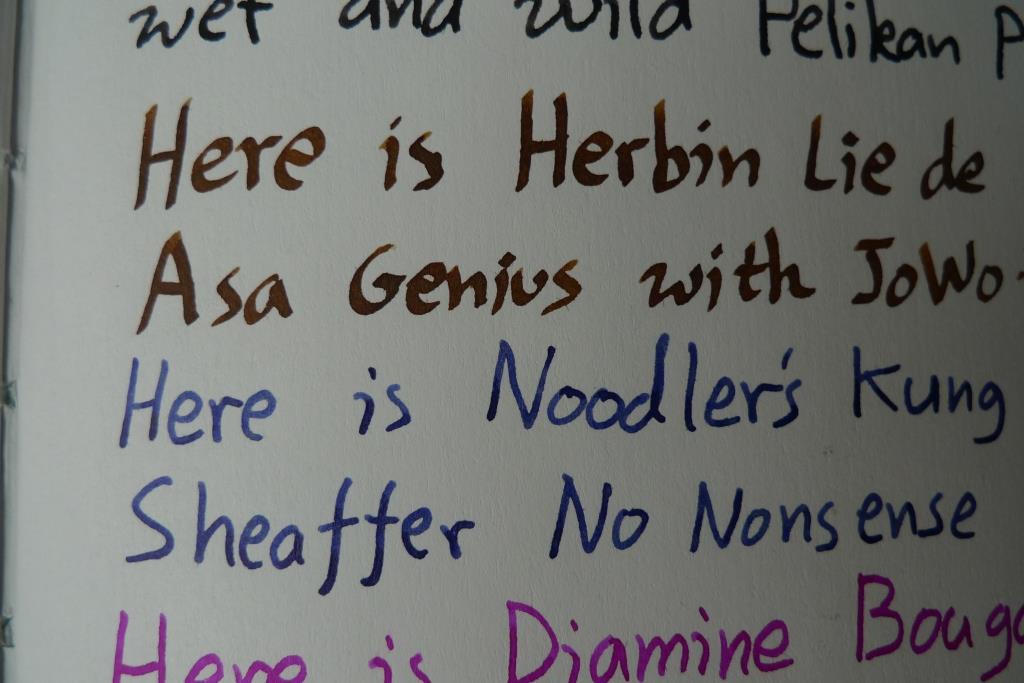 wet and wild Pelikan P
Here is Herbin Lie de
Asa Genius with JoWo
Here is Noodler's Kung
Sheaffer No Nonsense
Here is Diamine Bouga